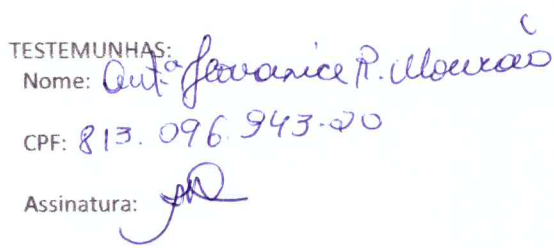 TESTEMUNHAS:
Nome: Antª Geovanice R. Mourão
CPF: 813.096.943-20
Assinatura: